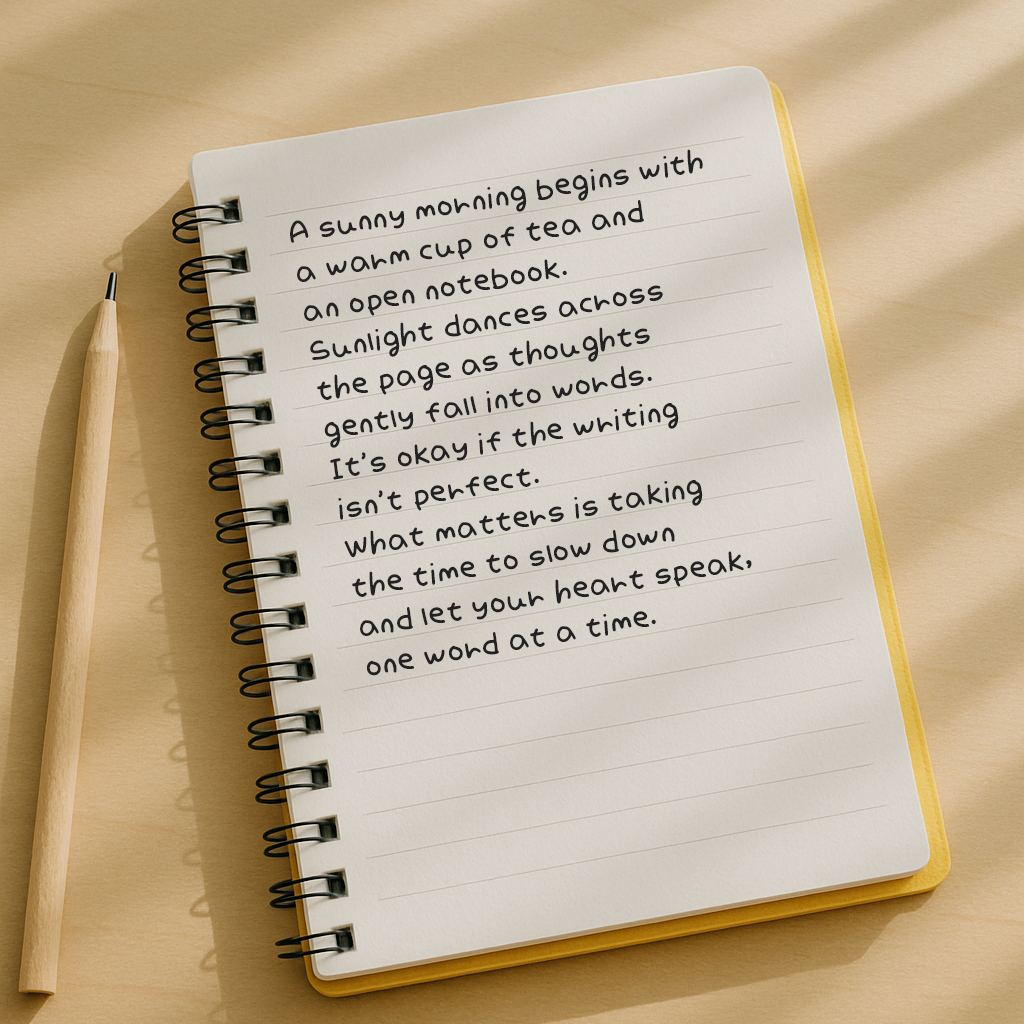 A sunny morning begins with
a warm cup of tea and
an open notebook.
Sunlight dances across
the page as thoughts
gently fall into words.
It's okay if the writing
isn't perfect.
What matters is taking
the time to slow down
and let your heart speak,
one word at a time.